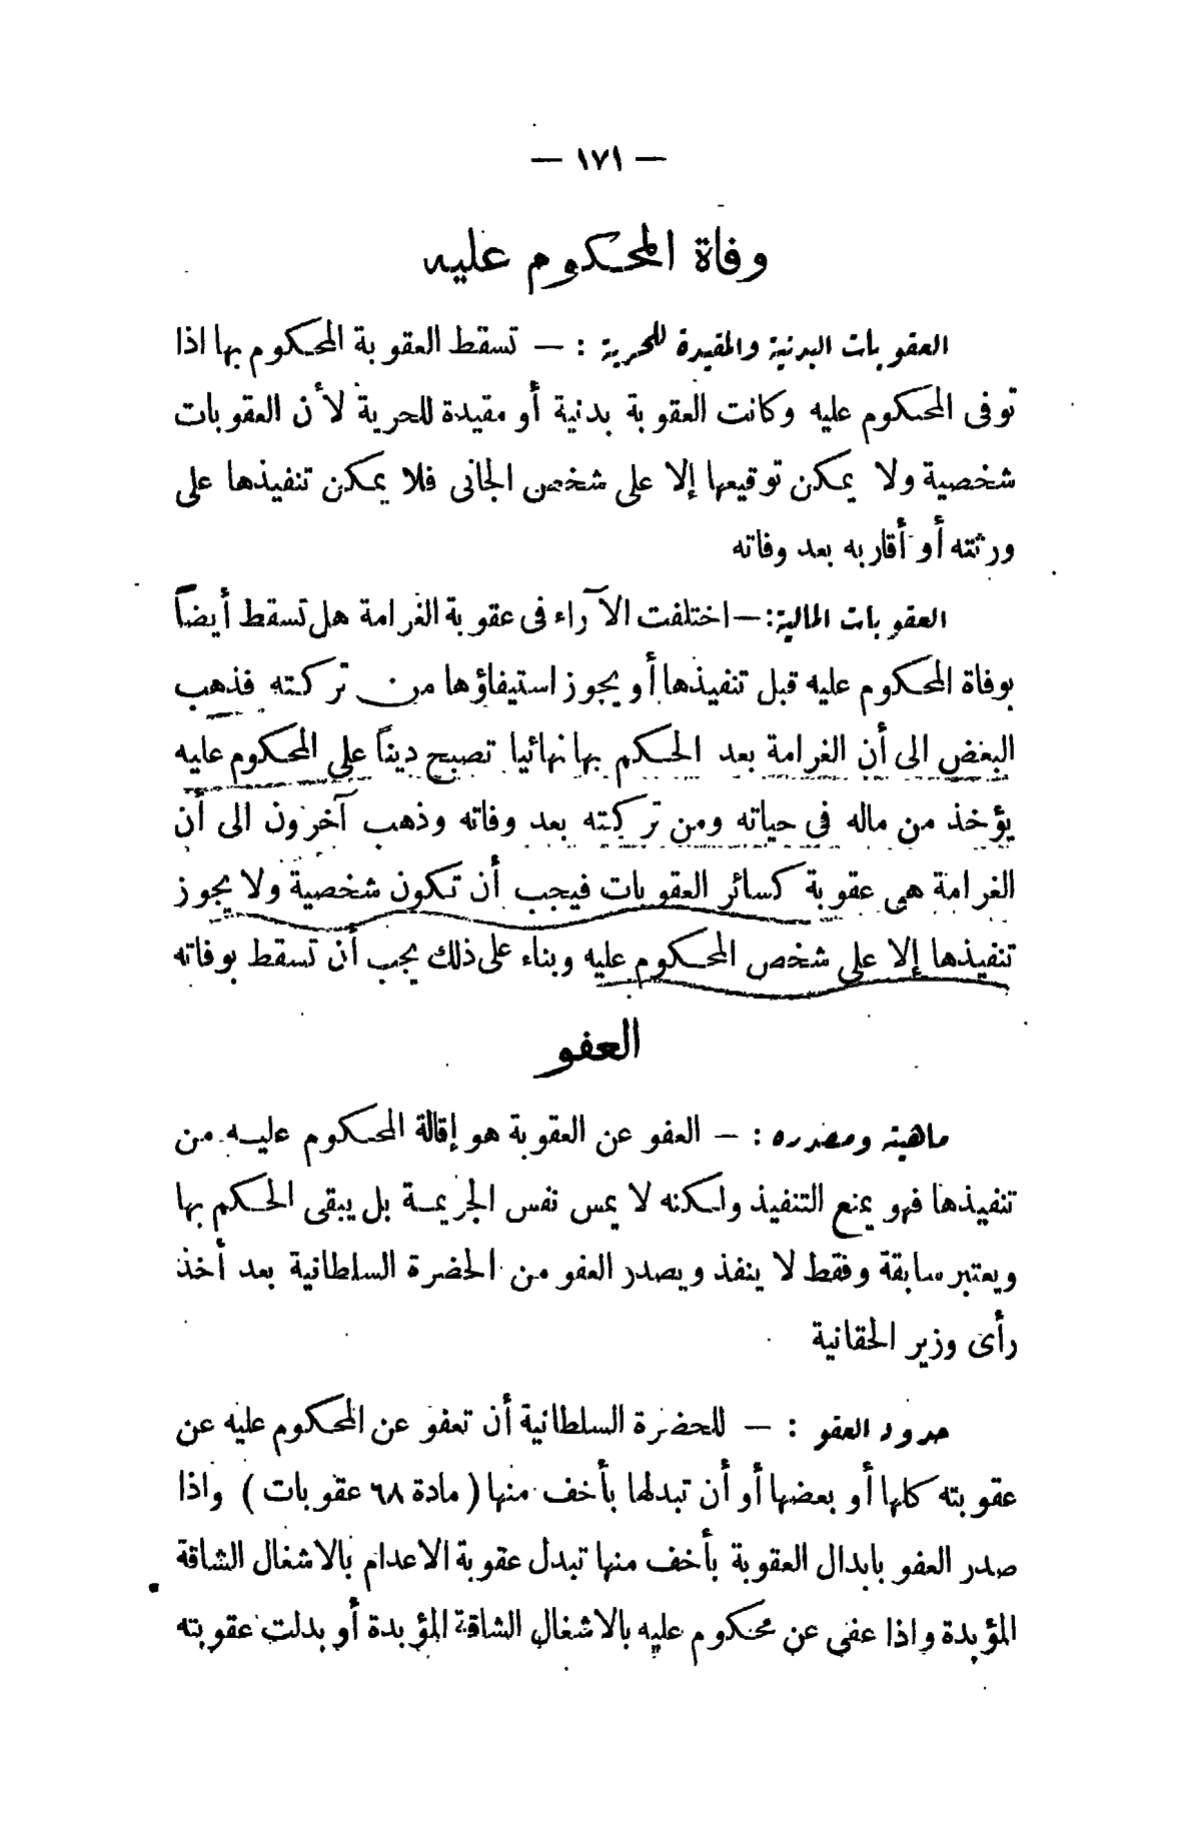 — ١٧١ —
وفاة المحكوم عليه
العقوبات البدنية والمقيدة للحرية : — تسقط العقوبة المحكوم بها اذا
توفى المحكوم عليه وكانت العقوبة بدنية أو مقيدة للحرية لأن العقوبات
شخصية ولا يمكن توقيعها إلا على شخص الجانى فلا يمكن تنفيذها على
ورثته أو أقاربه بعد وفاته
العقوبات المالية:— اختلفت الآراء فى عقوبة الغرامة هل تسقط أيضاً
بوفاة المحكوم عليه قبل تنفيذها أو يجوز استيفاؤها من تركته فذهب
البعض الى أن الغرامة بعد الحكم بها نهائيا تصبح ديناً على المحكوم عليه
يؤخذ من ماله فى حياته ومن تركته بعد وفاته وذهب آخرون الى أن
الغرامة هى عقوبة كسائر العقوبات فيجب أن تكون شخصية ولا يجوز
تنفيذها إلا على شخص المحكوم عليه وبناء على ذلك يجب أن تسقط بوفاته
العفو
ماهيته ومصدره : — العفو عن العقوبة هو إقالة المحكوم عليه من
تنفيذها فهو يمنع التنفيذ ولكنه لا يمس نفس الجريمة بل يبقى الحكم بها
ويعتبر سابقة وفقط لا ينفذ ويصدر العفو من الحضرة السلطانية بعد أخذ
رأى وزير الحقانية
حدود العفو : — للحضرة السلطانية أن تعفو عن المحكوم عليه عن
عقوبته كلها أو بعضها أو أن تبدلها بأخف منها ( مادة ٦٨ عقوبات ) واذا
صدر العفو بابدال العقوبة بأخف منها تبدل عقوبة الاعدام بالاشغال الشاقة
المؤبدة واذا عفى عن محكوم عليه بالاشغال الشاقة المؤبدة أو بدلت عقوبته